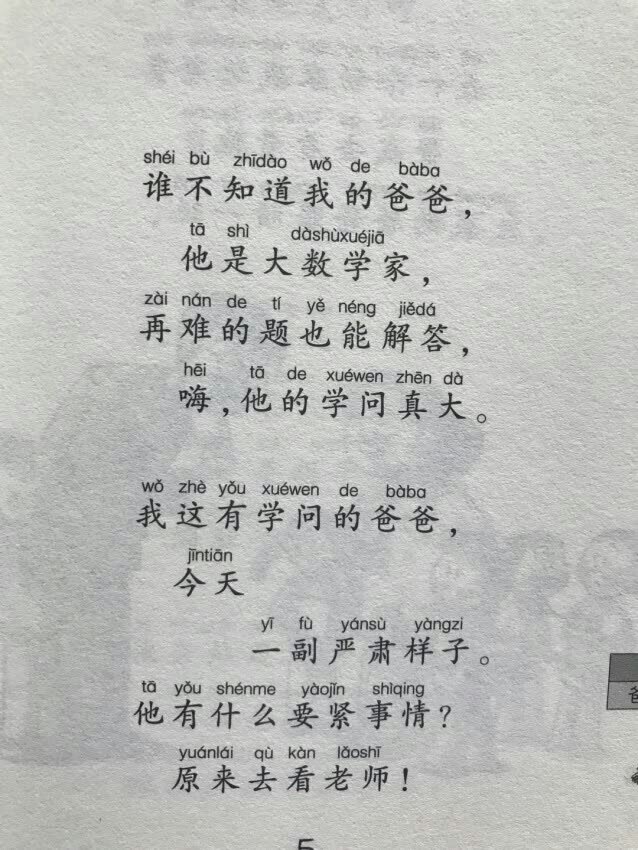 shéi bù zhīdào wǒ de bàba
谁不知道我的爸爸，
tā shì dàshùxuéjiā
他是大数学家，
zài nán de tí yě néng jiědá
再难的题也能解答，
hēi tā de xuéwen zhēn dà
嗨，他的学问真大。
wǒ zhè yǒu xuéwen de bàba
我这有学问的爸爸，
jīntiān
今天
yī fù yánsù yàngzi
一副严肃样子。
tā yǒu shénme yàojǐn shìqing
他有什么要紧事情？
yuánlái qù kàn lǎoshī
原来去看老师！
5